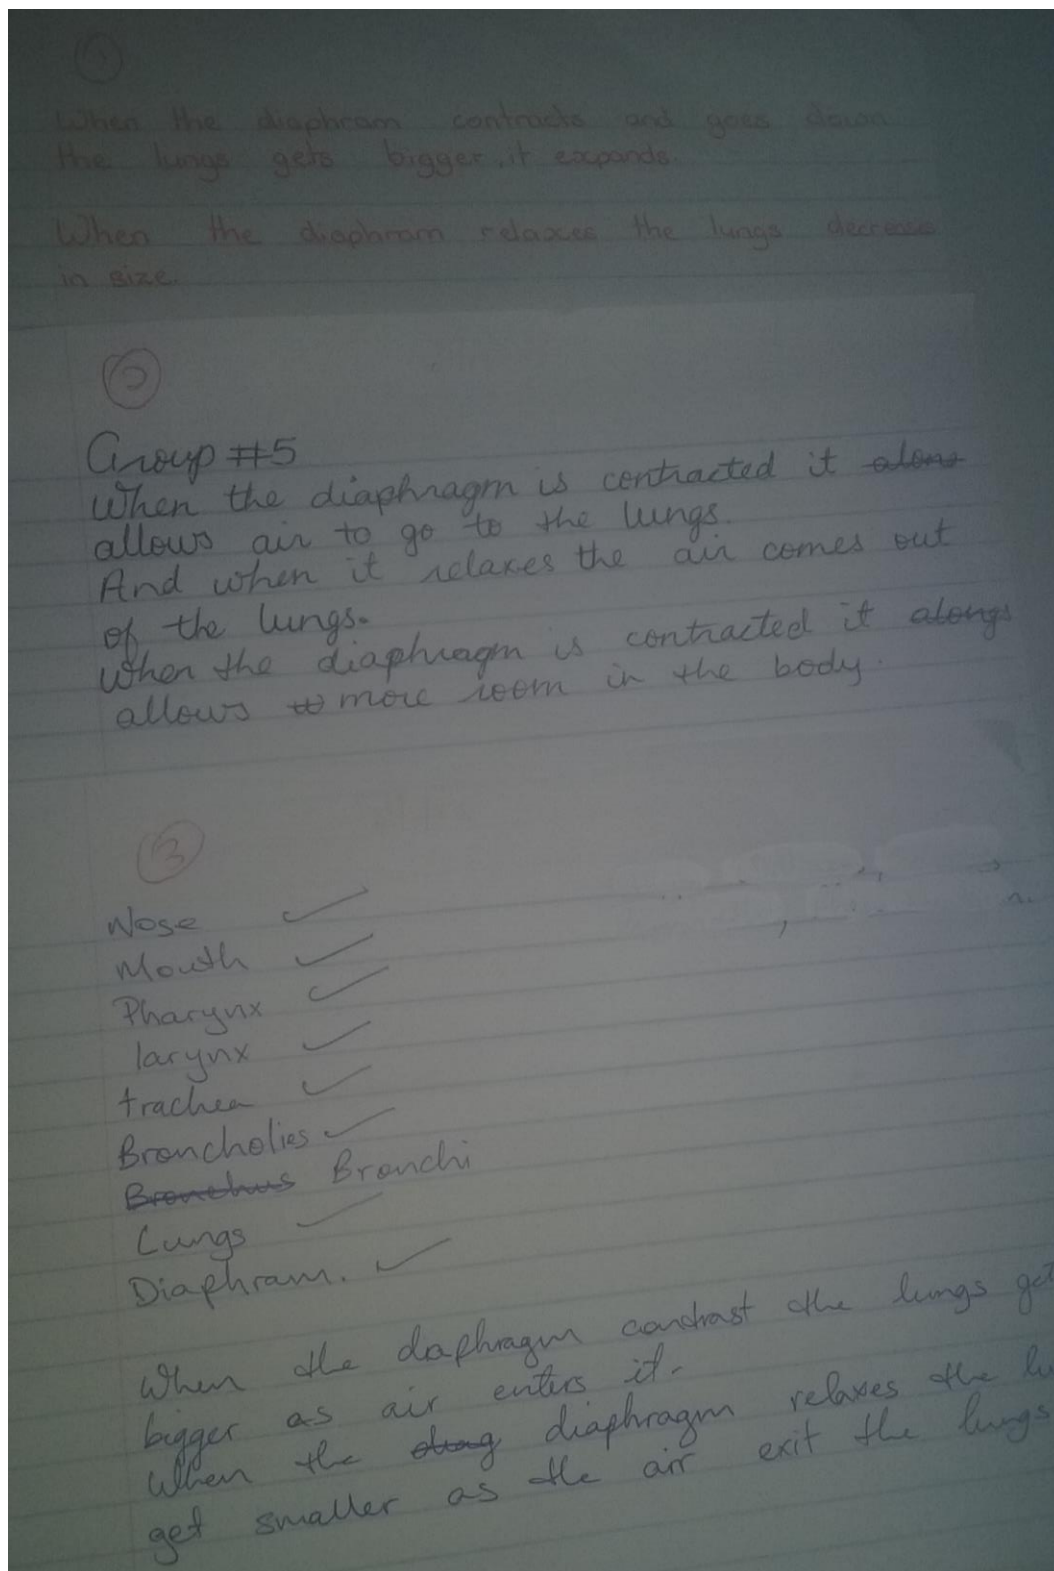 1
When the diaphram contracts and goes down
the lungs gets bigger, it expands.
When the diaphram relaxes the lungs decrease
in size.
2
Group #5
When the diaphragm is contracted it alows
allows air to go to the lungs.
And when it relaxes the air comes out
of the lungs.
When the diaphragm is contracted it alongs
allows to more room in the body.
3
Nose
Mouth
Pharynx
larynx
trachea
Broncholies
Bronchus Bronchi
Lungs
Diaphram.
When the daphragm contrast the lungs get
bigger as air enters it.
When the diaphragm relaxes the lu
get smaller as the air exit the lungs